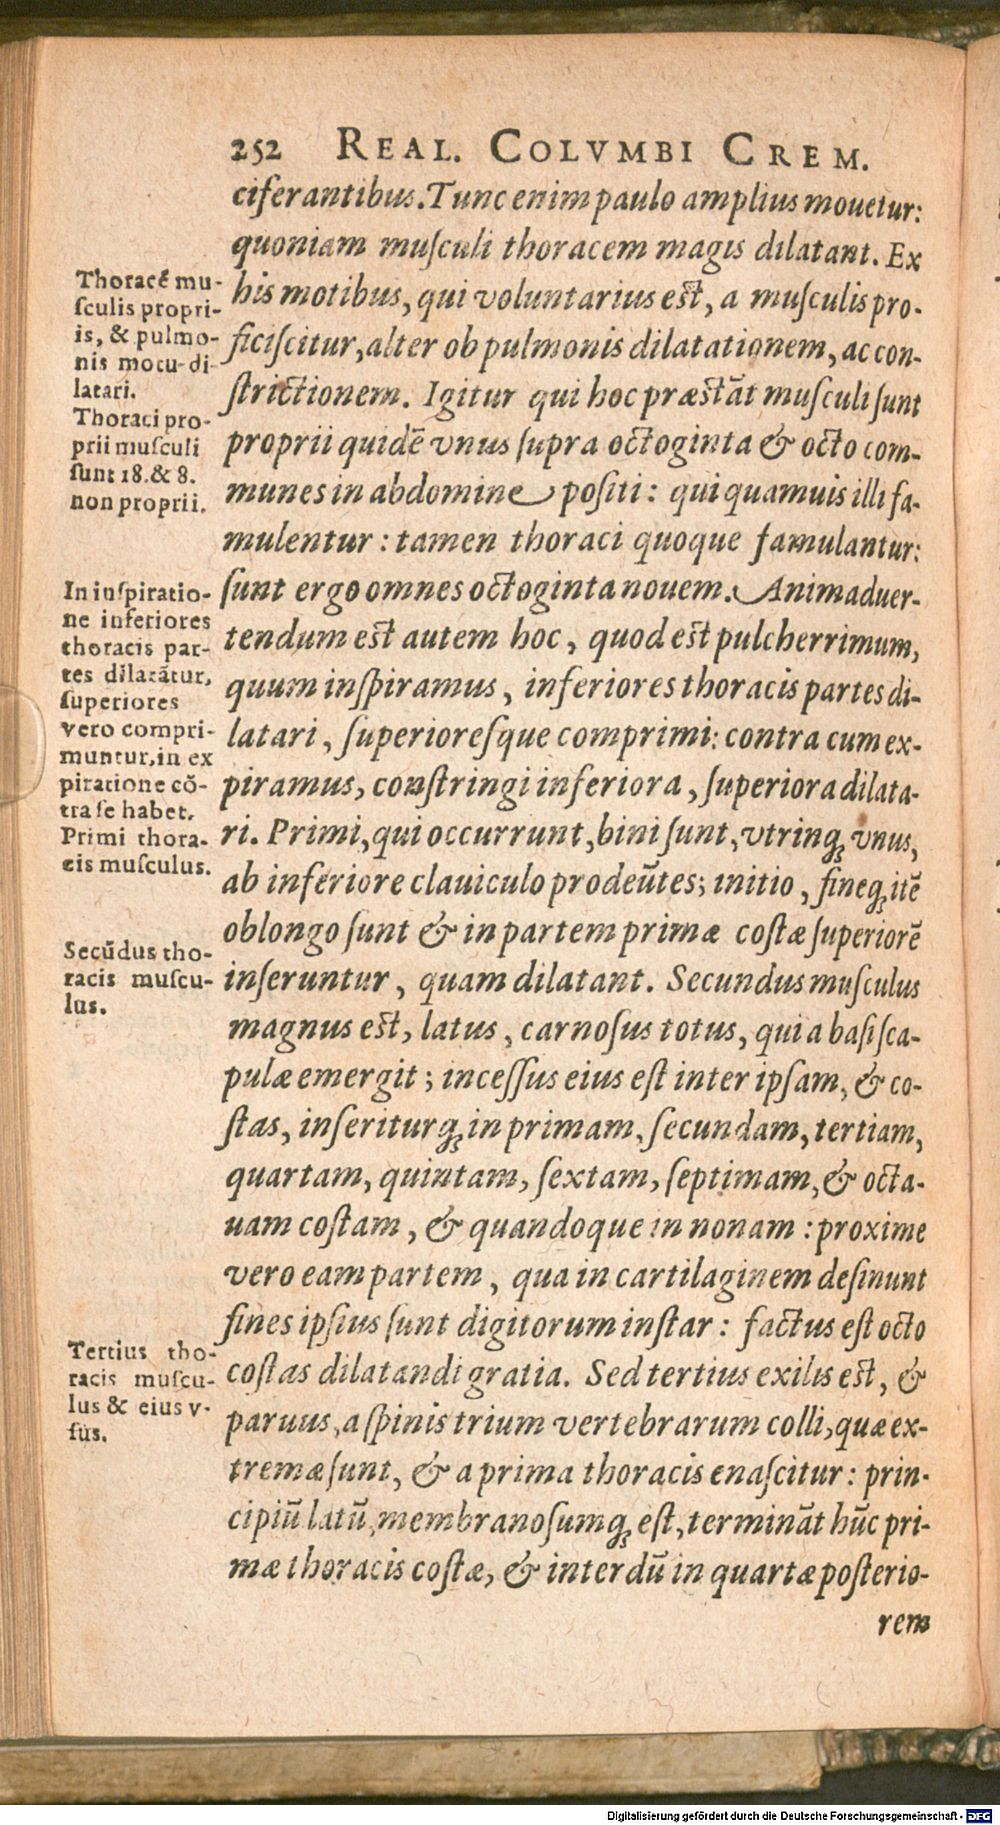 252 REAL. COLVMBI CREM.
ciferantibus. Tunc enim paulo amplius mouetur:
quoniam muſculi thoracem magis dilatant. Ex
his motibus, qui voluntarius est, a muſculis pro-
ficiſcitur, alter ob pulmonis dilatationem, ac con-
ſtrictionem. Igitur qui hoc præstāt muſculi ſunt
proprii quidē vnus ſupra octoginta & octo com-
munes in abdomine poſiti: qui quamuis illi fa-
mulentur: tamen thoraci quoque famulantur:
ſunt ergo omnes octoginta nouem. Animaduer-
tendum est autem hoc, quod est pulcherrimum,
quum inſpiramus, inferiores thoracis partes di-
latari, ſuperioreſque comprimi: contra cum ex-
piramus, conſtringi inferiora, ſuperiora dilata-
ri. Primi, qui occurrunt, bini ſunt, vtrinq; vnus,
ab inferiore clauiculo prodeūtes; initio, fineq; itē
oblongo ſunt & in partem primæ coſtæ ſuperiorē
inſeruntur, quam dilatant. Secundus muſculus
magnus est, latus, carnoſus totus, qui a baſi ſca-
pulæ emergit; inceſſus eius eſt inter ipſam, & co-
ſtas, inſeriturq; in primam, ſecundam, tertiam,
quartam, quintam, ſextam, ſeptimam, & octa-
uam coſtam, & quandoque in nonam: proxime
vero eam partem, qua in cartilaginem deſinunt
fines ipſius ſunt digitorum inſtar: factus eſt octo
coſtas dilatandi gratia. Sed tertius exilis est, &
paruus, a ſpinis trium vertebrarum colli, quæ ex-
tremæ ſunt, & a prima thoracis enaſcitur: prin-
cipiū latū, membranoſumq; eſt, termināt hūc pri-
mæ thoracis coſtæ, & interdū in quartæ poſterio-
rem
Thoracē mu-
ſculis propri-
is, & pulmo-
nis motu di-
latari.
Thoraci pro-
prii muſculi
ſunt 18. & 8.
non proprii.
In inſpiratio-
ne inferiores
thoracis par-
tes dilatātur,
ſuperiores
vero compri-
muntur, in ex
piratione cō-
tra ſe habet.
Primi thora-
cis muſculus.
Secūdus tho-
racis muſcu-
lus.
Tertius tho-
racis muſcu-
lus & eius v-
ſus.
Digitalisierung gefördert durch die Deutsche Forschungsgemeinschaft - DFG